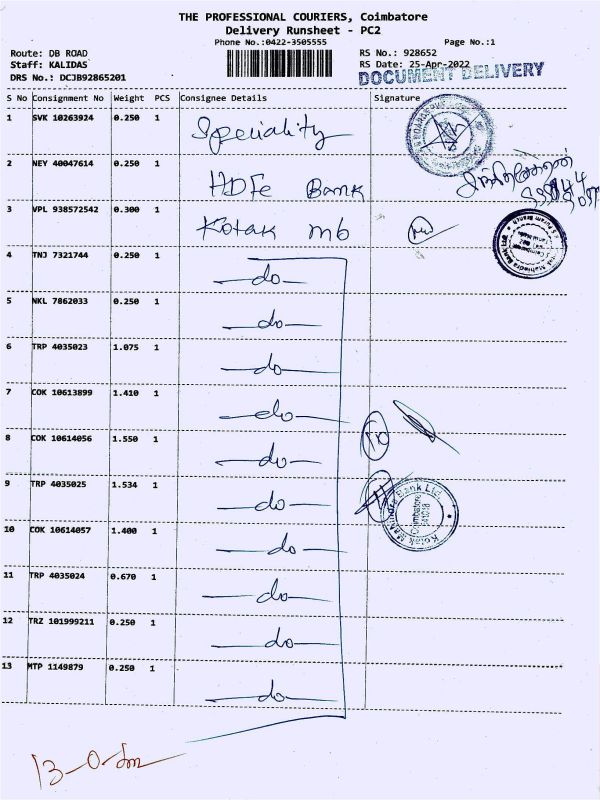 THE PROFESSIONAL COURIERS, Coimbatore
Delivery Runsheet - PC2
Phone No.:0422-3505555
Page No.:1
Route: DB ROAD
RS No.: 928652
Staff: KALIDAS
RS Date: 25-Apr-2022
DRS No.: DCJB92865201
DOCUMENT DELIVERY
S No Consignment No Weight PCS Consignee Details Signature
1 SVK 10263924 0.250 1 Speciality
2 NEY 40047614 0.250 1 HDFC Bank
3 VPL 938572542 0.300 1 Kotak mb
4 TNJ 7321744 0.250 1 -do-
5 NKL 7862033 0.250 1 -do-
6 TRP 4035023 1.075 1 -do-
7 COK 10613899 1.410 1 -do-
8 COK 10614056 1.550 1 -do-
9 TRP 4035025 1.534 1 -do-
Kotak Mahindra Bank Ltd.
Coimbatore
641018
10 COK 10614057 1.400 1 -do-
11 TRP 4035024 0.670 1 -do-
12 TRZ 101999211 0.250 1 -do-
13 MTP 1149879 0.250 1 -do-